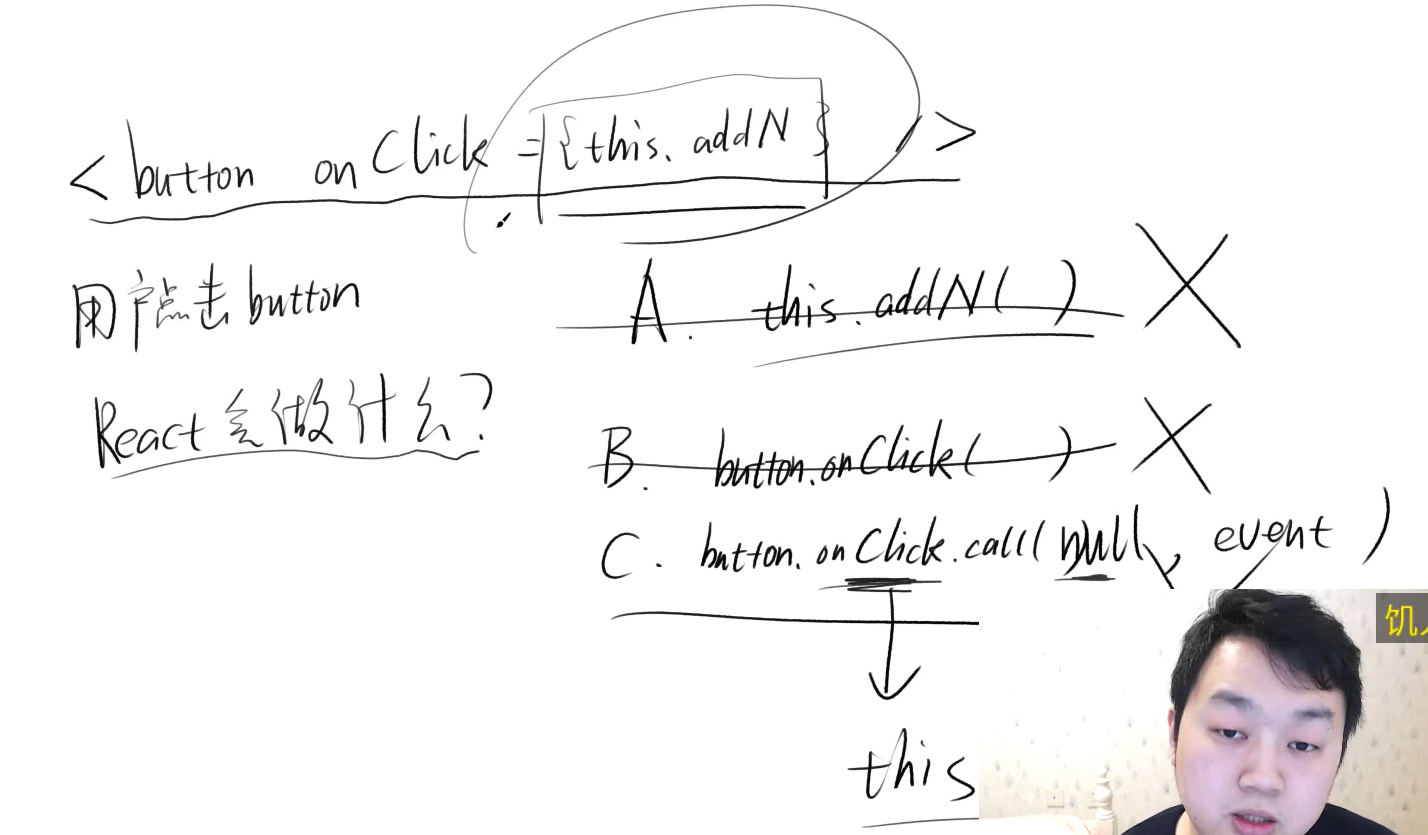 < button onClick = {this.addN} >
用户点击button
A. this.addN( )
React会做什么?
B. button.onClick( )
C. button.onClick.call(null, event)
this
饥